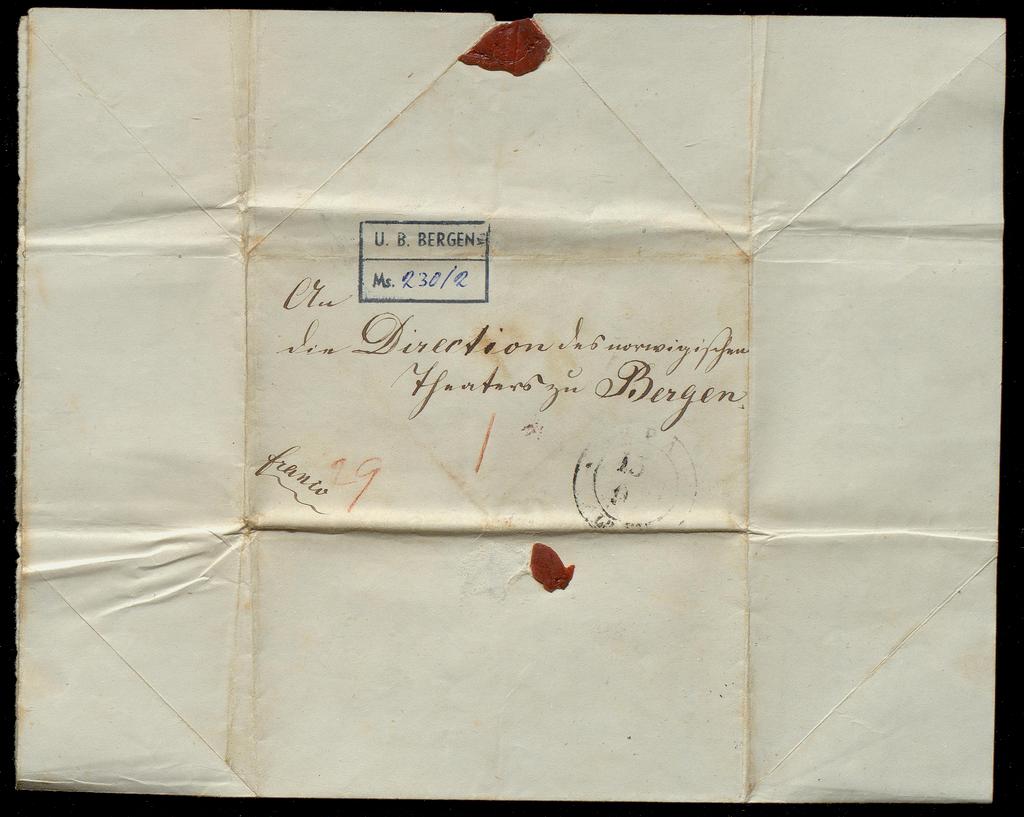 U. B. BERGEN
Ms. 230/2
An
die Direction des norwigischen
Theaters zu Bergen.
franco
29